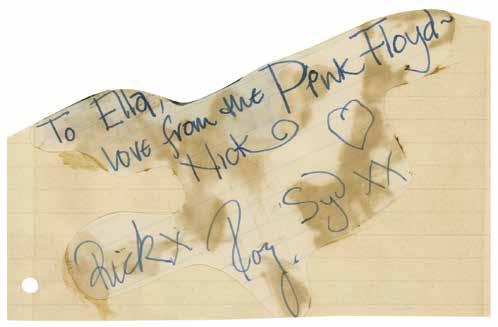 To Ella,
love from the Pink Floyd~
Nick
Rick x Rog. Syd XX